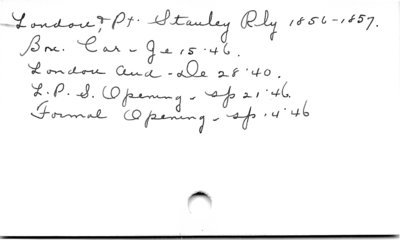 London & Pt. Stanley Rly 1856-1857.
Box. Car - Je 15·46.
London and - De 28·40.
L. P. S. Opening - Sp 21·46.
Formal Opening - Sp. 4·46